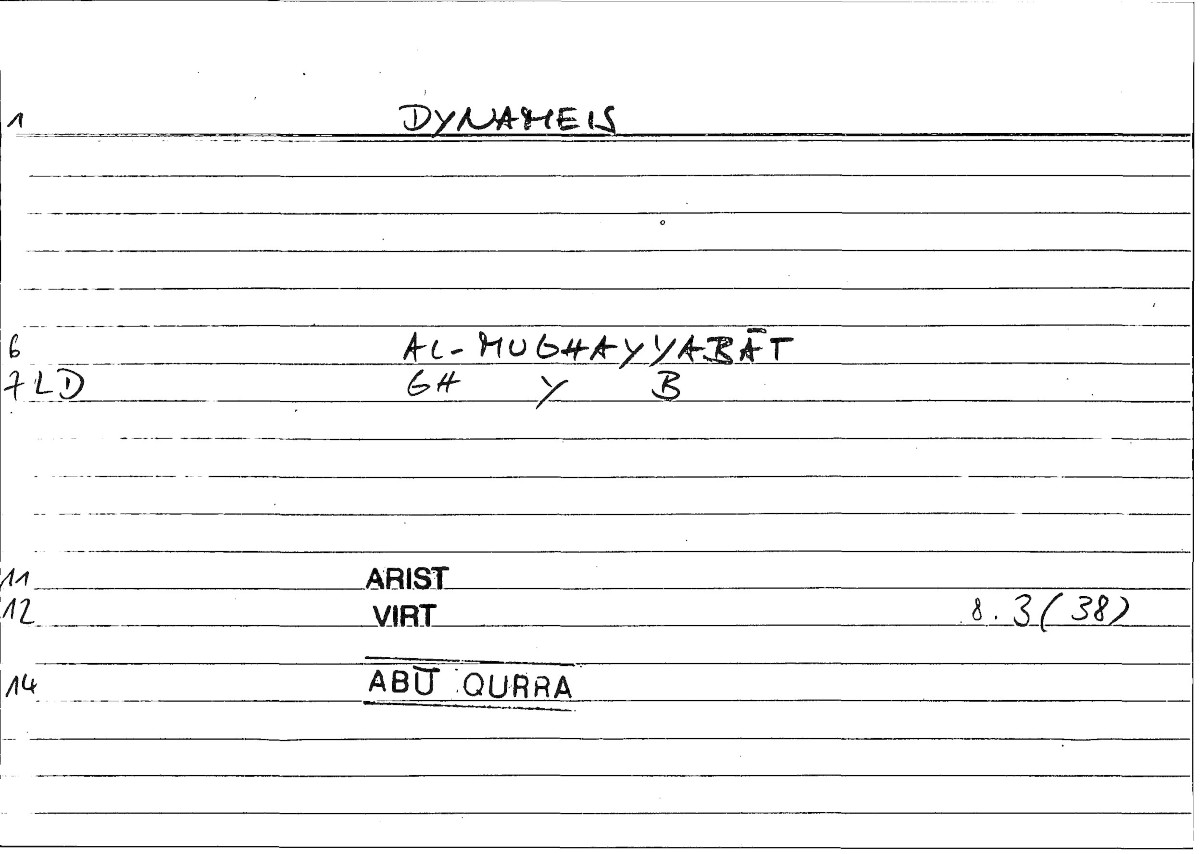 1 DYNAMEIS
6 AL-MUGHAYYABĀT
7LD GH Y B
11 ARIST
12 VIRT 8.3(38)
14 ABŪ QURRA